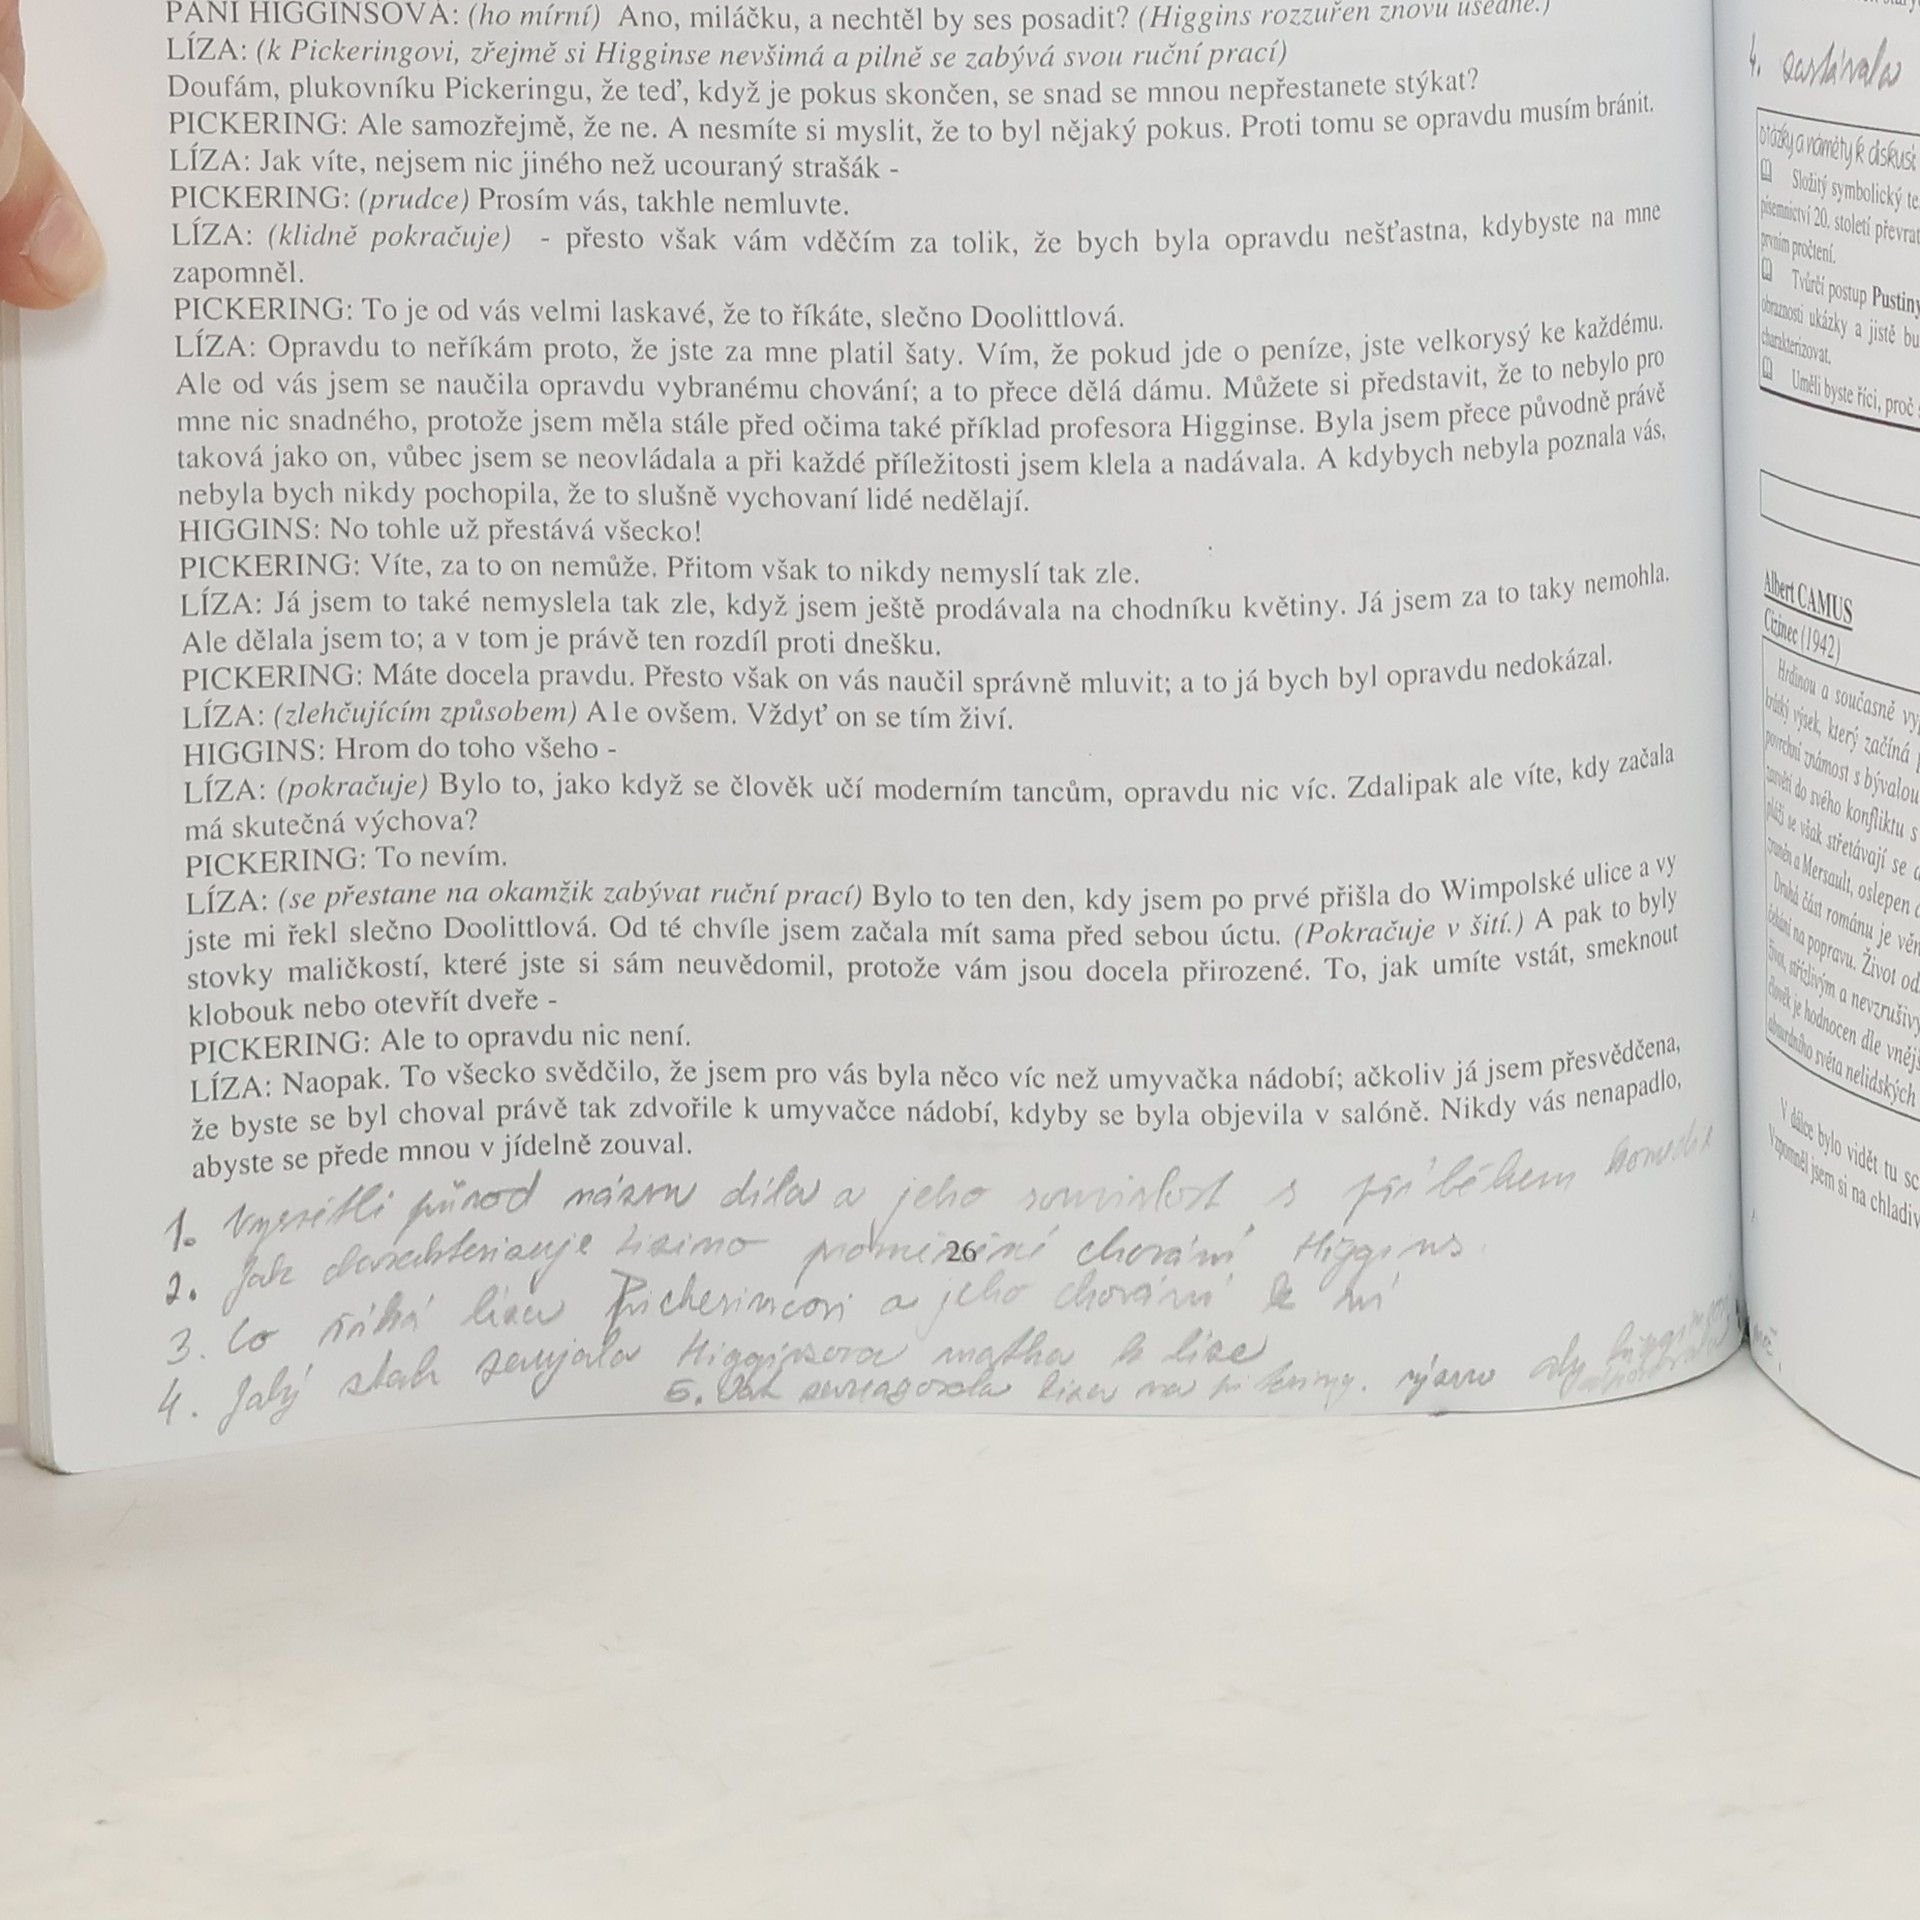 PANÍ HIGGINSOVÁ: (ho mírní) Ano, miláčku, a nechtěl by ses posadit? (Higgins rozzuřen znovu usedne.)
LÍZA: (k Pickeringovi, zřejmě si Higginse nevšimá a pilně se zabývá svou ruční prací)
Doufám, plukovníku Pickeringu, že teď, když je pokus skončen, se snad se mnou nepřestanete stýkat?
PICKERING: Ale samozřejmě, že ne. A nesmíte si myslit, že to byl nějaký pokus. Proti tomu se opravdu musím bránit.
LÍZA: Jak víte, nejsem nic jiného než ucouraný strašák -
PICKERING: (prudce) Prosím vás, takhle nemluvte.
LÍZA: (klidně pokračuje) - přesto však vám vděčím za tolik, že bych byla opravdu nešťastna, kdybyste na mne
zapomněl.
PICKERING: To je od vás velmi laskavé, že to říkáte, slečno Doolittlová.
LÍZA: Opravdu to neříkám proto, že jste za mne platil šaty. Vím, že pokud jde o peníze, jste velkorysý ke každému.
Ale od vás jsem se naučila opravdu vybranému chování; a to přece dělá dámu. Můžete si představit, že to nebylo pro
mne nic snadného, protože jsem měla stále před očima také příklad profesora Higginse. Byla jsem přece původně právě
taková jako on, vůbec jsem se neovládala a při každé příležitosti jsem klela a nadávala. A kdybych nebyla poznala vás,
nebyla bych nikdy pochopila, že to slušně vychovaní lidé nedělají.
HIGGINS: No tohle už přestává všecko!
PICKERING: Víte, za to on nemůže. Přitom však to nikdy nemyslí tak zle.
LÍZA: Já jsem to také nemyslela tak zle, když jsem ještě prodávala na chodníku květiny. Já jsem za to taky nemohla.
Ale dělala jsem to; a v tom je právě ten rozdíl proti dnešku.
PICKERING: Máte docela pravdu. Přesto však on vás naučil správně mluvit; a to já bych byl opravdu nedokázal.
LÍZA: (zlehčujícím způsobem) Ale ovšem. Vždyť on se tím živí.
HIGGINS: Hrom do toho všeho -
LÍZA: (pokračuje) Bylo to, jako když se člověk učí moderním tancům, opravdu nic víc. Zdalipak ale víte, kdy začala
má skutečná výchova?
PICKERING: To nevím.
LÍZA: (se přestane na okamžik zabývat ruční prací) Bylo to ten den, kdy jsem po prvé přišla do Wimpolské ulice a vy
jste mi řekl slečno Doolittlová. Od té chvíle jsem začala mít sama před sebou úctu. (Pokračuje v šití.) A pak to byly
stovky maličkostí, které jste si sám neuvědomil, protože vám jsou docela přirozené. To, jak umíte vstát, smeknout
klobouk nebo otevřít dveře -
PICKERING: Ale to opravdu nic není.
LÍZA: Naopak. To všecko svědčilo, že jsem pro vás byla něco víc než umyvačka nádobí; ačkoliv já jsem přesvědčena,
že byste se byl choval právě tak zdvořile k umyvačce nádobí, kdyby se byla objevila v salóně. Nikdy vás nenapadlo,
abyste se přede mnou v jídelně zouval.
1. Vysvětli původ názvu díla a jeho souvislost s příběhem komedie
2. Jak charakterizuje chování Higgins
26
3. Co říká Pickeringovi a jeho chování k ní
4. Jaký zaujala Higginsova matka k líze
5. Jak zareagovala na aby
4.
otázky a náměty k diskusi
Složitý symbolický
písemnictví 20. století
prvním pročtení.
Tvůrčí postup
obraznosti ukázky a jistě
charakterizovat.
Uměli byste říci, proč
Albert CAMUS
Cizinec (1942)
Hrdinou a současně
krátký výsek, který začíná
povrchní známost s bývalou
do svého konfliktu s
pláži se však střetávají se
a Mersault, oslepen
Druhá část románu je
čekání na popravu. Život
život, střízlivým a
člověk je hodnocen dle
absurdního světa nelidských
V dálce bylo vidět tu
Vzpomněl jsem si na